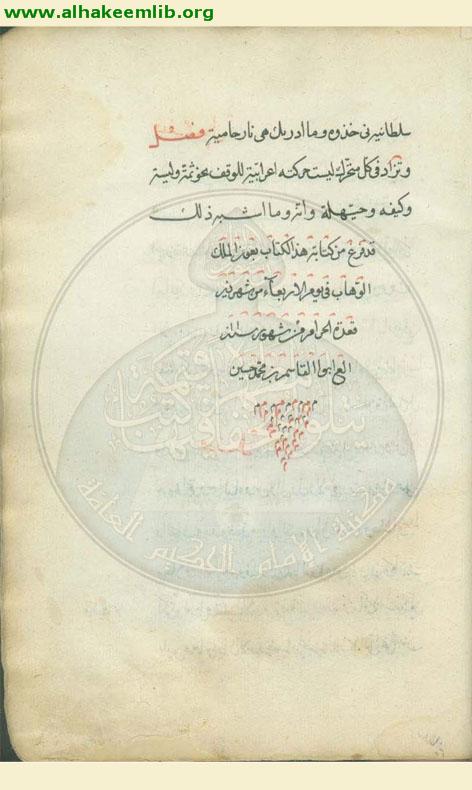 www.alhakeemlib.org
سلطانيه نى خذوه وما ادريك هى نار حامية فصل
وتزاد فى كل متحرك ليست حركته اعرابية للوقف نحو ثمة وليته
وكيفه وحيهلة وأثر وما اشبه ذلك
قد فرغ من كتابة هذا الكتاب بعون الملك
الوهاب فى يوم الاربعاء من شهر
قعدة الحرام من شهور سنه
ابوا القاسم بن محمد حسين
مكتبة الإمام الحكيم العامة